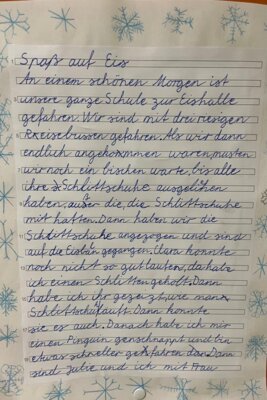 Spaß auf Eis
An einem schönen Morgen ist
unsere ganze Schule zur Eishalle
gefahren. Wir sind mit drei riesigen
Reisebussen gefahren. Als wir dann
endlich angekommen waren, mussten
wir noch ein bischen warte, bis alle
ihre Schlittschuhe ausgelihen
haben, außer die, die Schlittschuhe
mit hatten. Dann haben wir die
Schlittschuhe angezogen und sind
auf die Eisbahn gegangen. Clara konnte
noch nicht so gut laufen, da habe
ich einen Schlitten geholt. Dann
habe ich ihr gezeigt, wie man
Schlittschuläuft. Dann konnte
sie es auch. Danach habe ich mir
einen Pinguin geschnappt und bin
etwas schneller gefahren. Dann
sind Julie und ich mit Frau